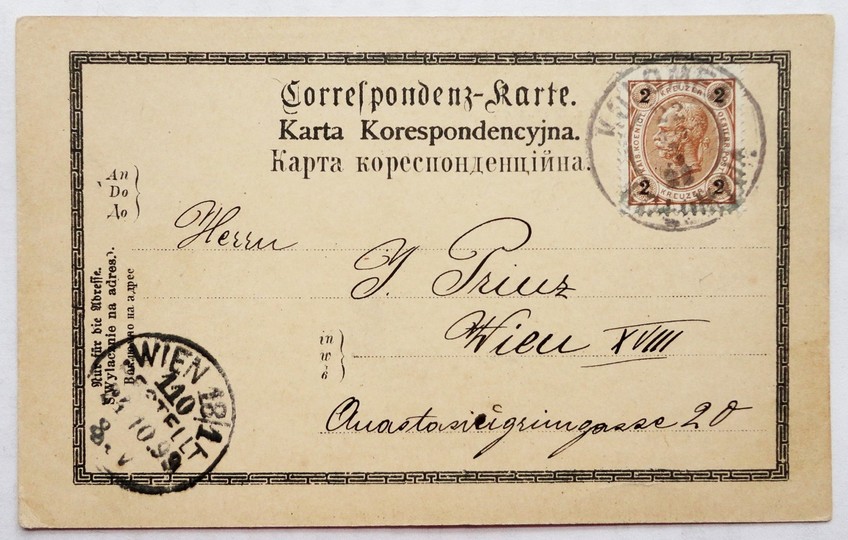 Correspondenz-Karte.
Karta Korespondencyjna.
Карта кореспонденційна.
2 KREUZER 2
2 KREUZER 2
An
Do
До
Herrn
J. Prinz
Wien XVIII
in
w
в
Anastasius grüngasse 20
Nur für die Adresse.
Wyłącznie na adres.
на адрес
WIEN 18/1
110
BESTELLT
10.99